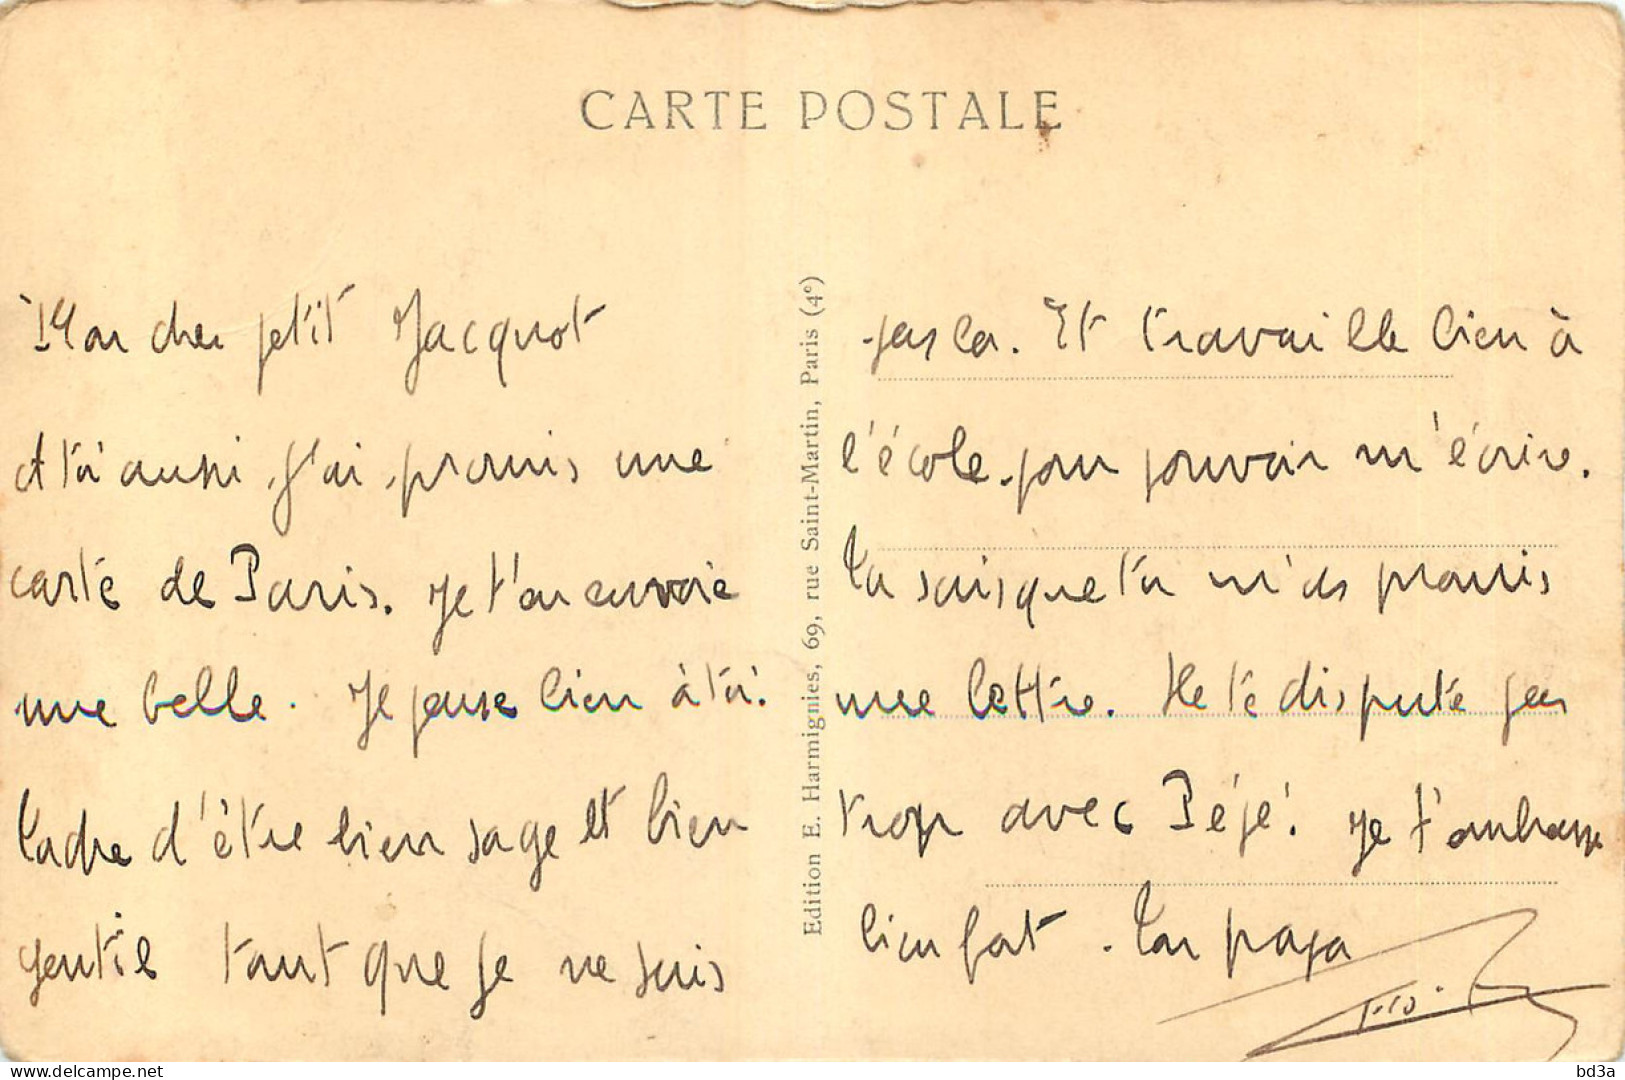 CARTE POSTALE
Mon cher petit Jacquot
A toi aussi j'ai promis une
carte de Paris. Je t'en envoie
une belle. Je pense bien à toi.
Tache d'être bien sage et bien
gentil tant que je ne suis
pas la. Et travaille bien à
l'école pour pouvoir m'écrire.
Tu sais que tu m'as promis
une lettre. Ne te dispute pas
trop avec Pépé. Je t'embrasse
bien fort. Ton papa
Edition E. Harmignies, 69, rue Saint-Martin, Paris (4e)
https://www.delcampe.net
bd3a